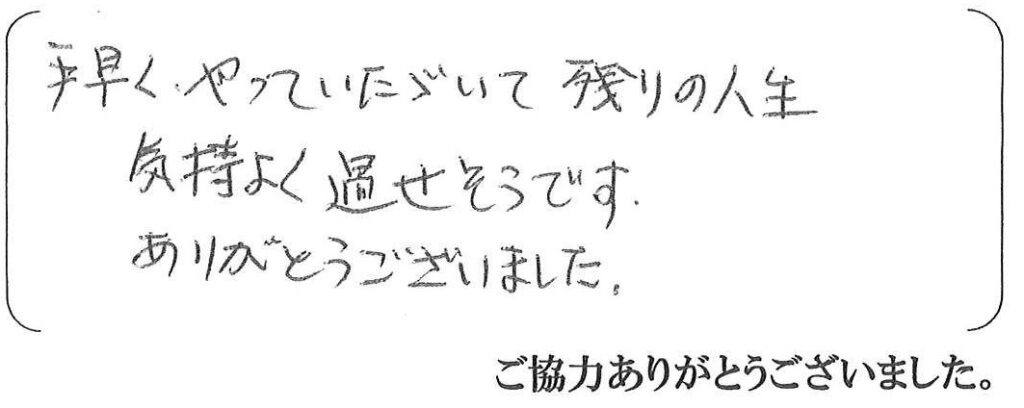 手早く、やっていただいて 残りの人生
気持よく 過せそうです.
ありがとうございました。
ご協力ありがとうございました。